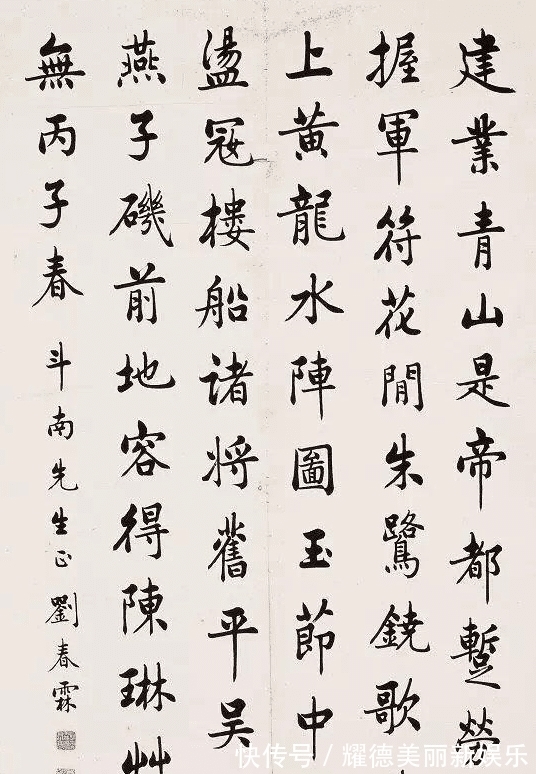 建業青山是帝都蹔勞
握軍符花閒朱鷺鐃歌
上黃龍水陣圖玉節中
盪冦樓船諸將舊平吳
燕子磯前地容得陳琳艸
無丙子春 斗南先生正 劉春霖
快传号 / 耀德美丽新娱乐